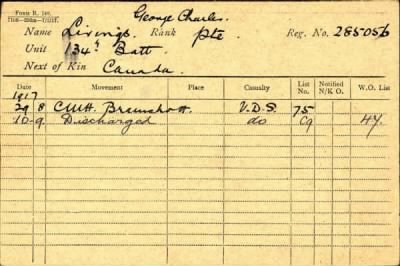 Form R. 149.
George Charles.
Name Livings. Rank Pte. Reg. No. 285056
Unit 134th Batt.
Next of Kin Canada.
Date Movement Place Casualty List No. Notified N/K O. W.O. List
1917
29 8 C.M.H. Bramshott. V.D.S. 75
10-9 Discharged do C9 44.